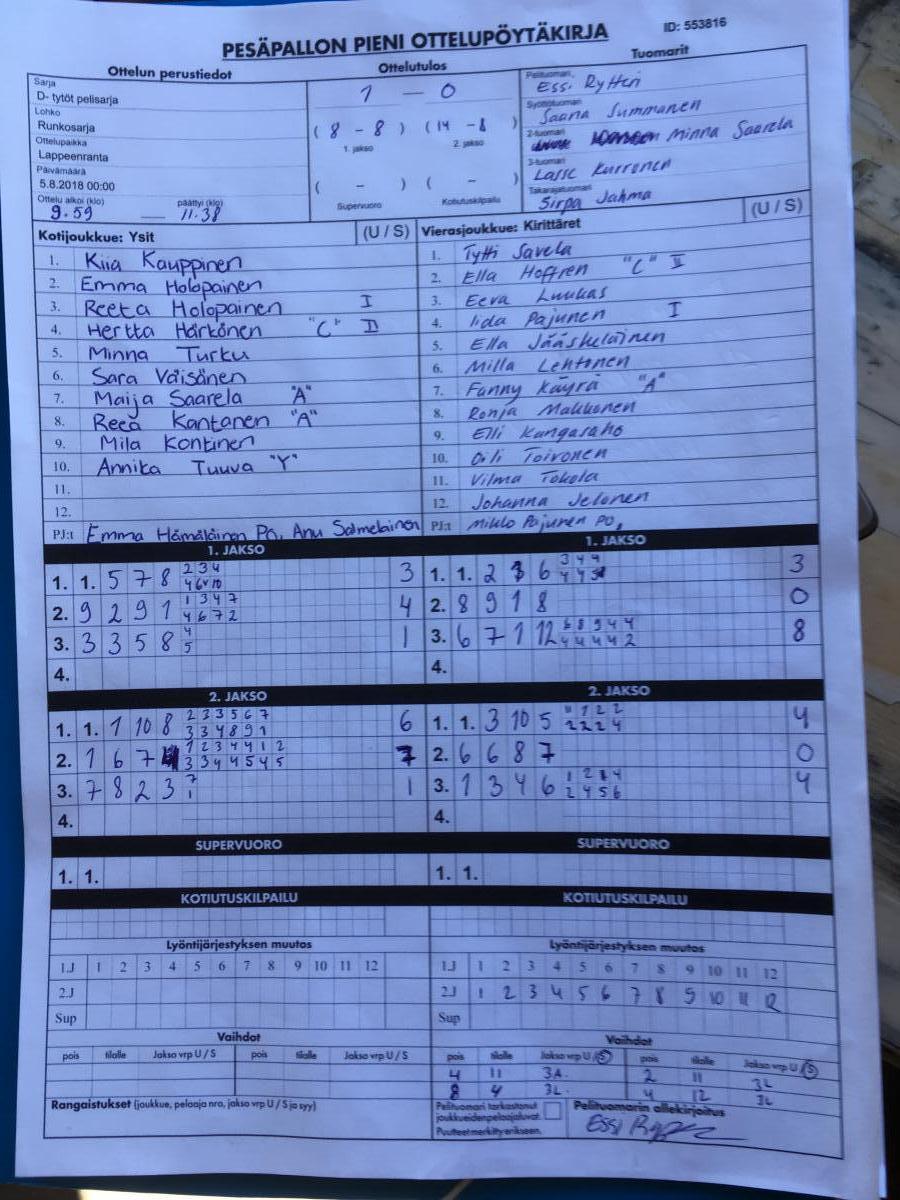 PESÄPALLON PIENI OTTELUPÖYTÄKIRJA ID: 553816
Ottelun perustiedot Ottelutulos Tuomarit
Sarja
D- tytöt pelisarja
Lohko
Runkosarja
Ottelupaikka
Lappeenranta
Päivämäärä
5.8.2018 00:00
Ottelu alkoi (klo) päättyi (klo)
9.59 — 11.38
1 — 0
( 8 - 8 ) ( 14 - 8 )
1. jakso 2. jakso
( - ) ( - )
Supervuoro Kotiutuskilpailu
Pelituomari
Essi Rytteri
Syöttötuomari
Saana Summanen
2-tuomari
Minna Saarela
3-tuomari
Lasse Kurronen
Takarajatuomari
Sirpa Jahma
Kotijoukkue: Ysit (U / S)
1. Kiia Kauppinen
2. Emma Holopainen
3. Reeta Holopainen I
4. Hertta Härkönen "C" II
5. Minna Turku
6. Sara Väisänen
7. Maija Saarela "A"
8. Reea Kantanen "A"
9. Mila Kontinen
10. Annika Tuuva "Y"
11.
12.
PJ:t Emma Hämäläinen PO, Anu Salmelainen
Vierasjoukkue: Kirittäret (U / S)
1. Tytti Savela
2. Ella Hoffren "C" II
3. Eeva Luukas
4. Iida Pajunen I
5. Ella Jääskeläinen
6. Milla Lehtonen
7. Fanny Käyrä "A"
8. Ronja Makkonen
9. Elli Kangasaho
10. Oili Toivonen
11. Vilma Tokola
12. Johanna Jelonen
PJ:t Mikko Pajunen PO,
1. JAKSO
1. 1. 5 7 8 2 3 4 3
4 6 10
2. 9 2 9 1 1 3 4 7 4
4 6 7 2
3. 3 3 5 8 4 1
5
4.
1. JAKSO
1. 1. 2 6 3 4 4 3
4 4
2. 8 9 1 8 0
3. 6 7 1 12 6 8 9 4 4 8
4 4 4 4 2
4.
2. JAKSO
1. 1. 1 10 8 2 3 3 5 6 7 6
3 3 4 8 9 1
2. 1 6 7 1 2 3 4 4 1 2 7
3 3 4 4 5 4 5
3. 7 8 2 3 7 1
1
4.
2. JAKSO
1. 1. 3 10 5 11 1 2 2 4
2 2 2 4
2. 6 6 8 7 0
3. 1 3 4 6 1 2 4 4
2 4 5 6
4.
SUPERVUORO
1. 1.
SUPERVUORO
1. 1.
KOTIUTUSKILPAILU
KOTIUTUSKILPAILU
Lyöntijärjestyksen muutos
1.J 1 2 3 4 5 6 7 8 9 10 11 12
2.J
Sup
Lyöntijärjestyksen muutos
1.J 1 2 3 4 5 6 7 8 9 10 11 12
2.J 1 2 3 4 5 6 7 8 9 10 11 12
Sup
Vaihdot
pois tilalle Jakso vrp U / S pois tilalle Jakso vrp U / S
Vaihdot
pois tilalle Jakso vrp U / S pois tilalle Jakso vrp U / S
4 11 3A. 2 11 3L
8 4 3L. 4 12 3L
Rangaistukset (joukkue, pelaaja nro, jakso vrp U / S ja syy)
Pelituomari tarkastanut
joukkueiden pelaajaluvat.
Puutteet merkitty erikseen.
Pelituomarin allekirjoitus
Essi